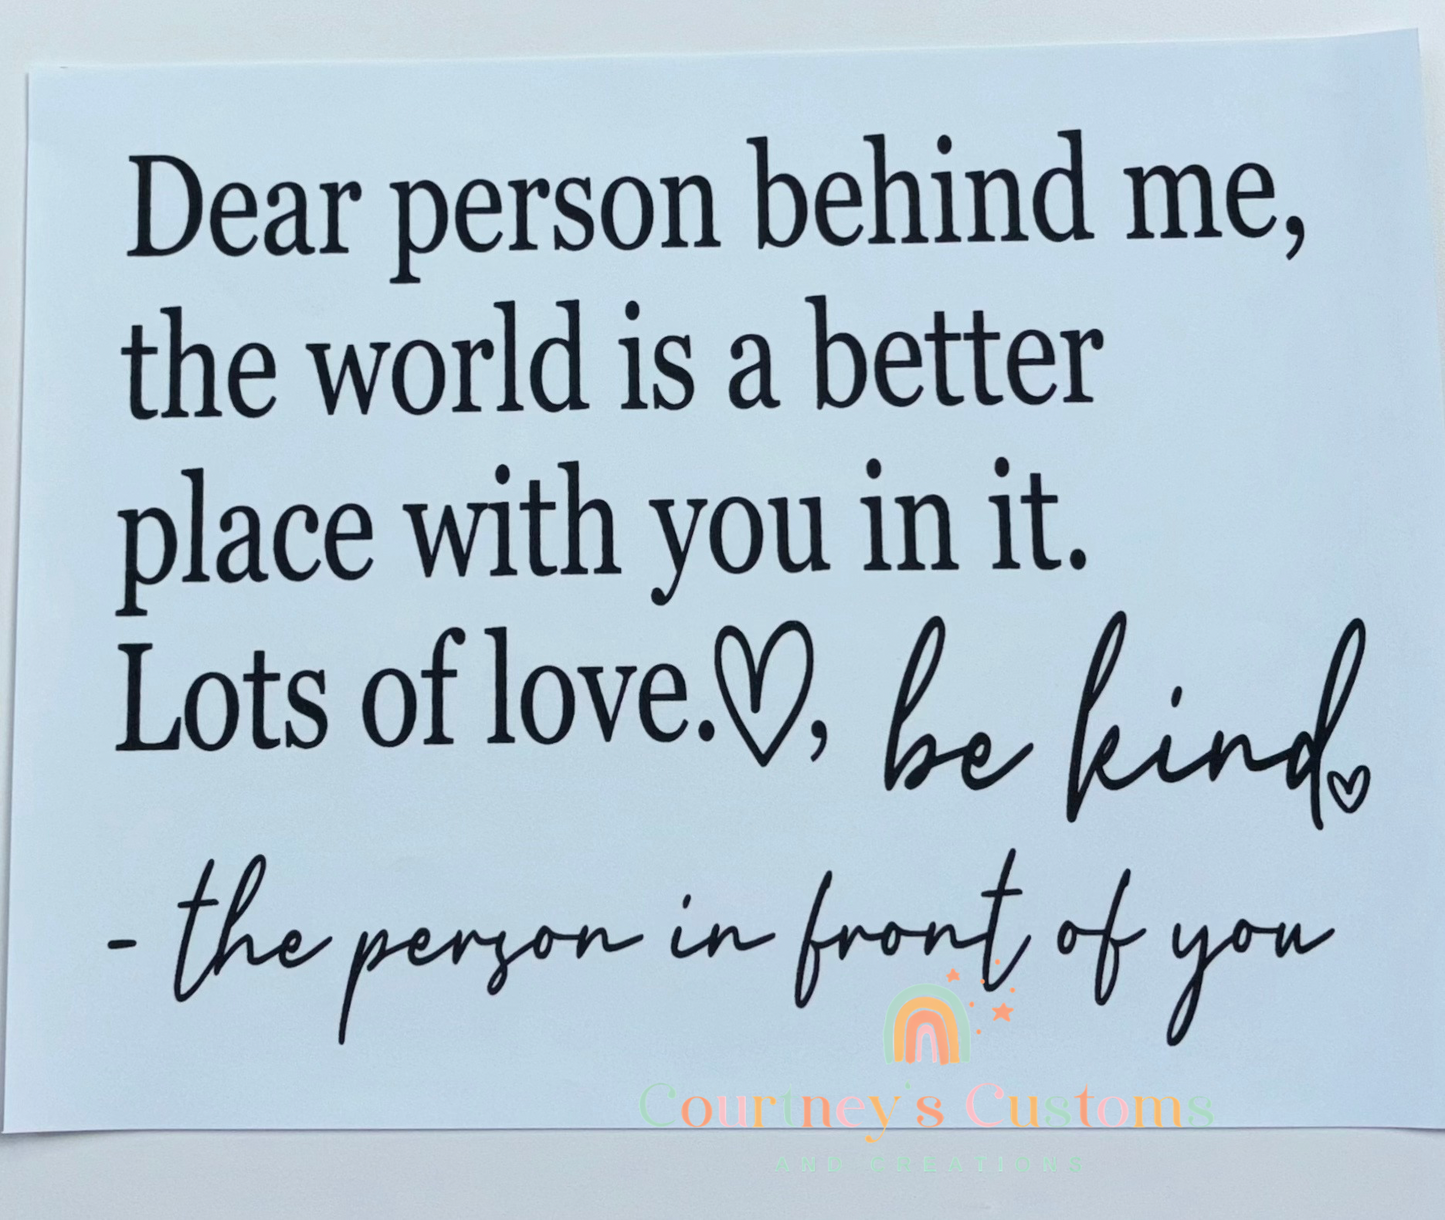 Dear person behind me,
the world is a better
place with you in it.
Lots of love.♡, be kind♡
- the person in front of you
Courtney's Customs
AND CREATIONS